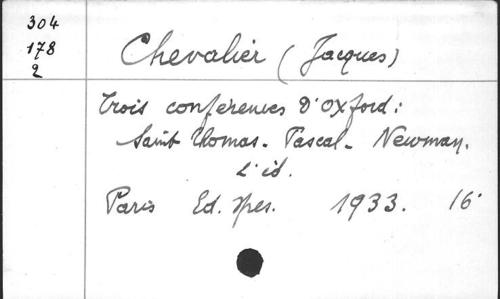 304
178
2
Chevalier (Jacques)
Trois conférences d'Oxford:
Saint Thomas - Pascal - Newman.
Paris Ed. Spes. 1933. 16°